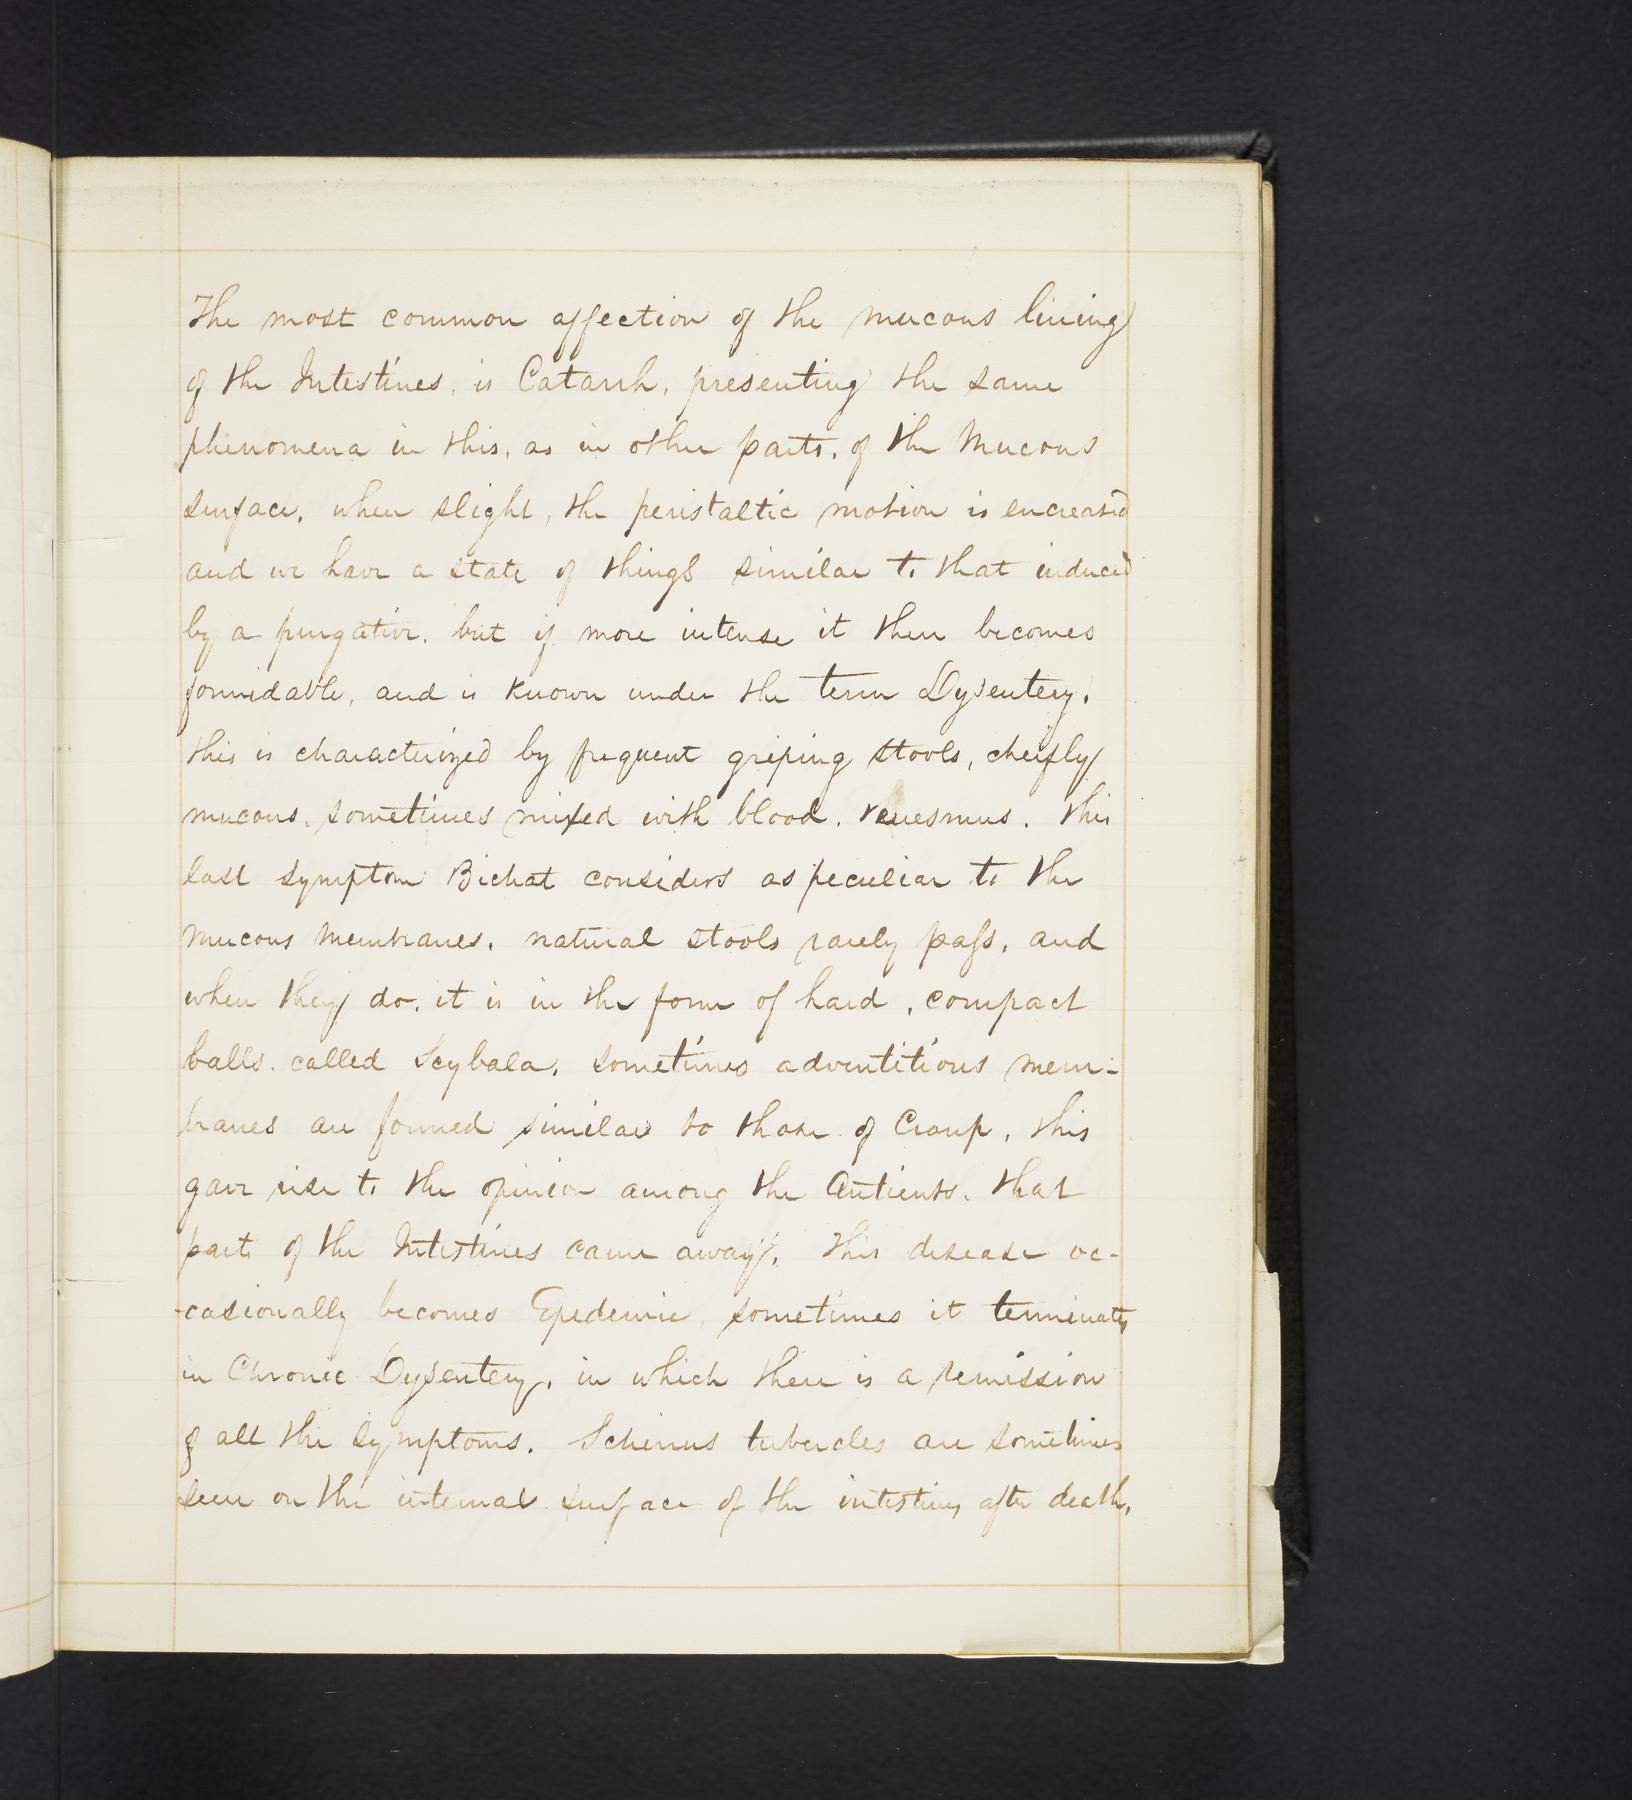 The most common affection of the mucous lining
of the Intestines, is Catarrh, presenting the same
phenomena in this, as in other parts, of the Mucous
surface, when slight, the peristaltic motion is encreased
and we have a state of things similar to that induced
by a purgative. but if more intense it then becomes
formidable, and is known under the term Dysentery.
this is characterized by frequent griping stools, cheifly
mucous, sometimes mixed with blood. tenesmus. this
last symptom Bichat considers as peculiar to the
mucous membranes. natural stools rarely pass, and
when they do, it is in the form of hard, compact
balls. called Scybala. sometimes adventitious mem-
branes are formed similar to those of Croup, this
gave rise to the opinion among the Antients. that
parts of the Intestines came away. This disease oc-
-casionally becomes Epedemic, sometimes it terminates
in Chronic Dysentery, in which there is a remission
of all the symptoms. Schirrus tubercles are sometimes
seen on the internal surface of the intestines after death.